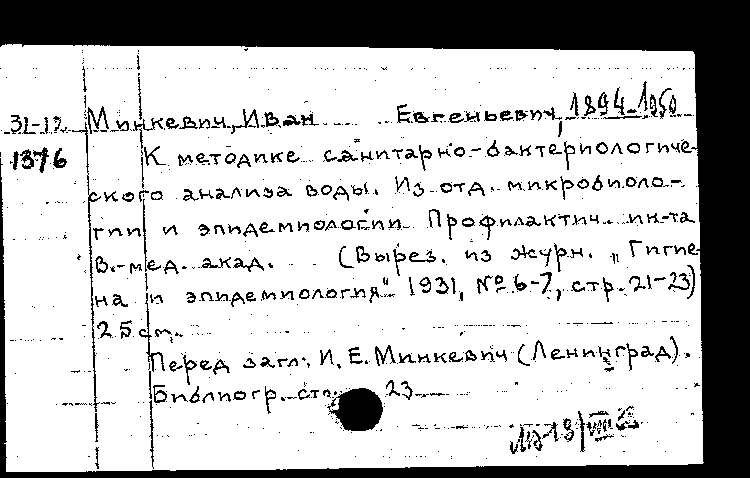 31-12 Минкевич, Иван Евгеньевич, 1894-1950
1376 К методике санитарно-бактериологиче-
ского анализа воды. Из отд. микробиоло-
гии и эпидемиологии Профилактич. ин-та
В.-мед. акад. (Вырез. из журн. „Гигие-
на и эпидемиология" 1931, № 6-7, стр. 21-23)
25 см.
Перед загл: И. Е. Минкевич (Ленинград).
Библиогр. стр. 23